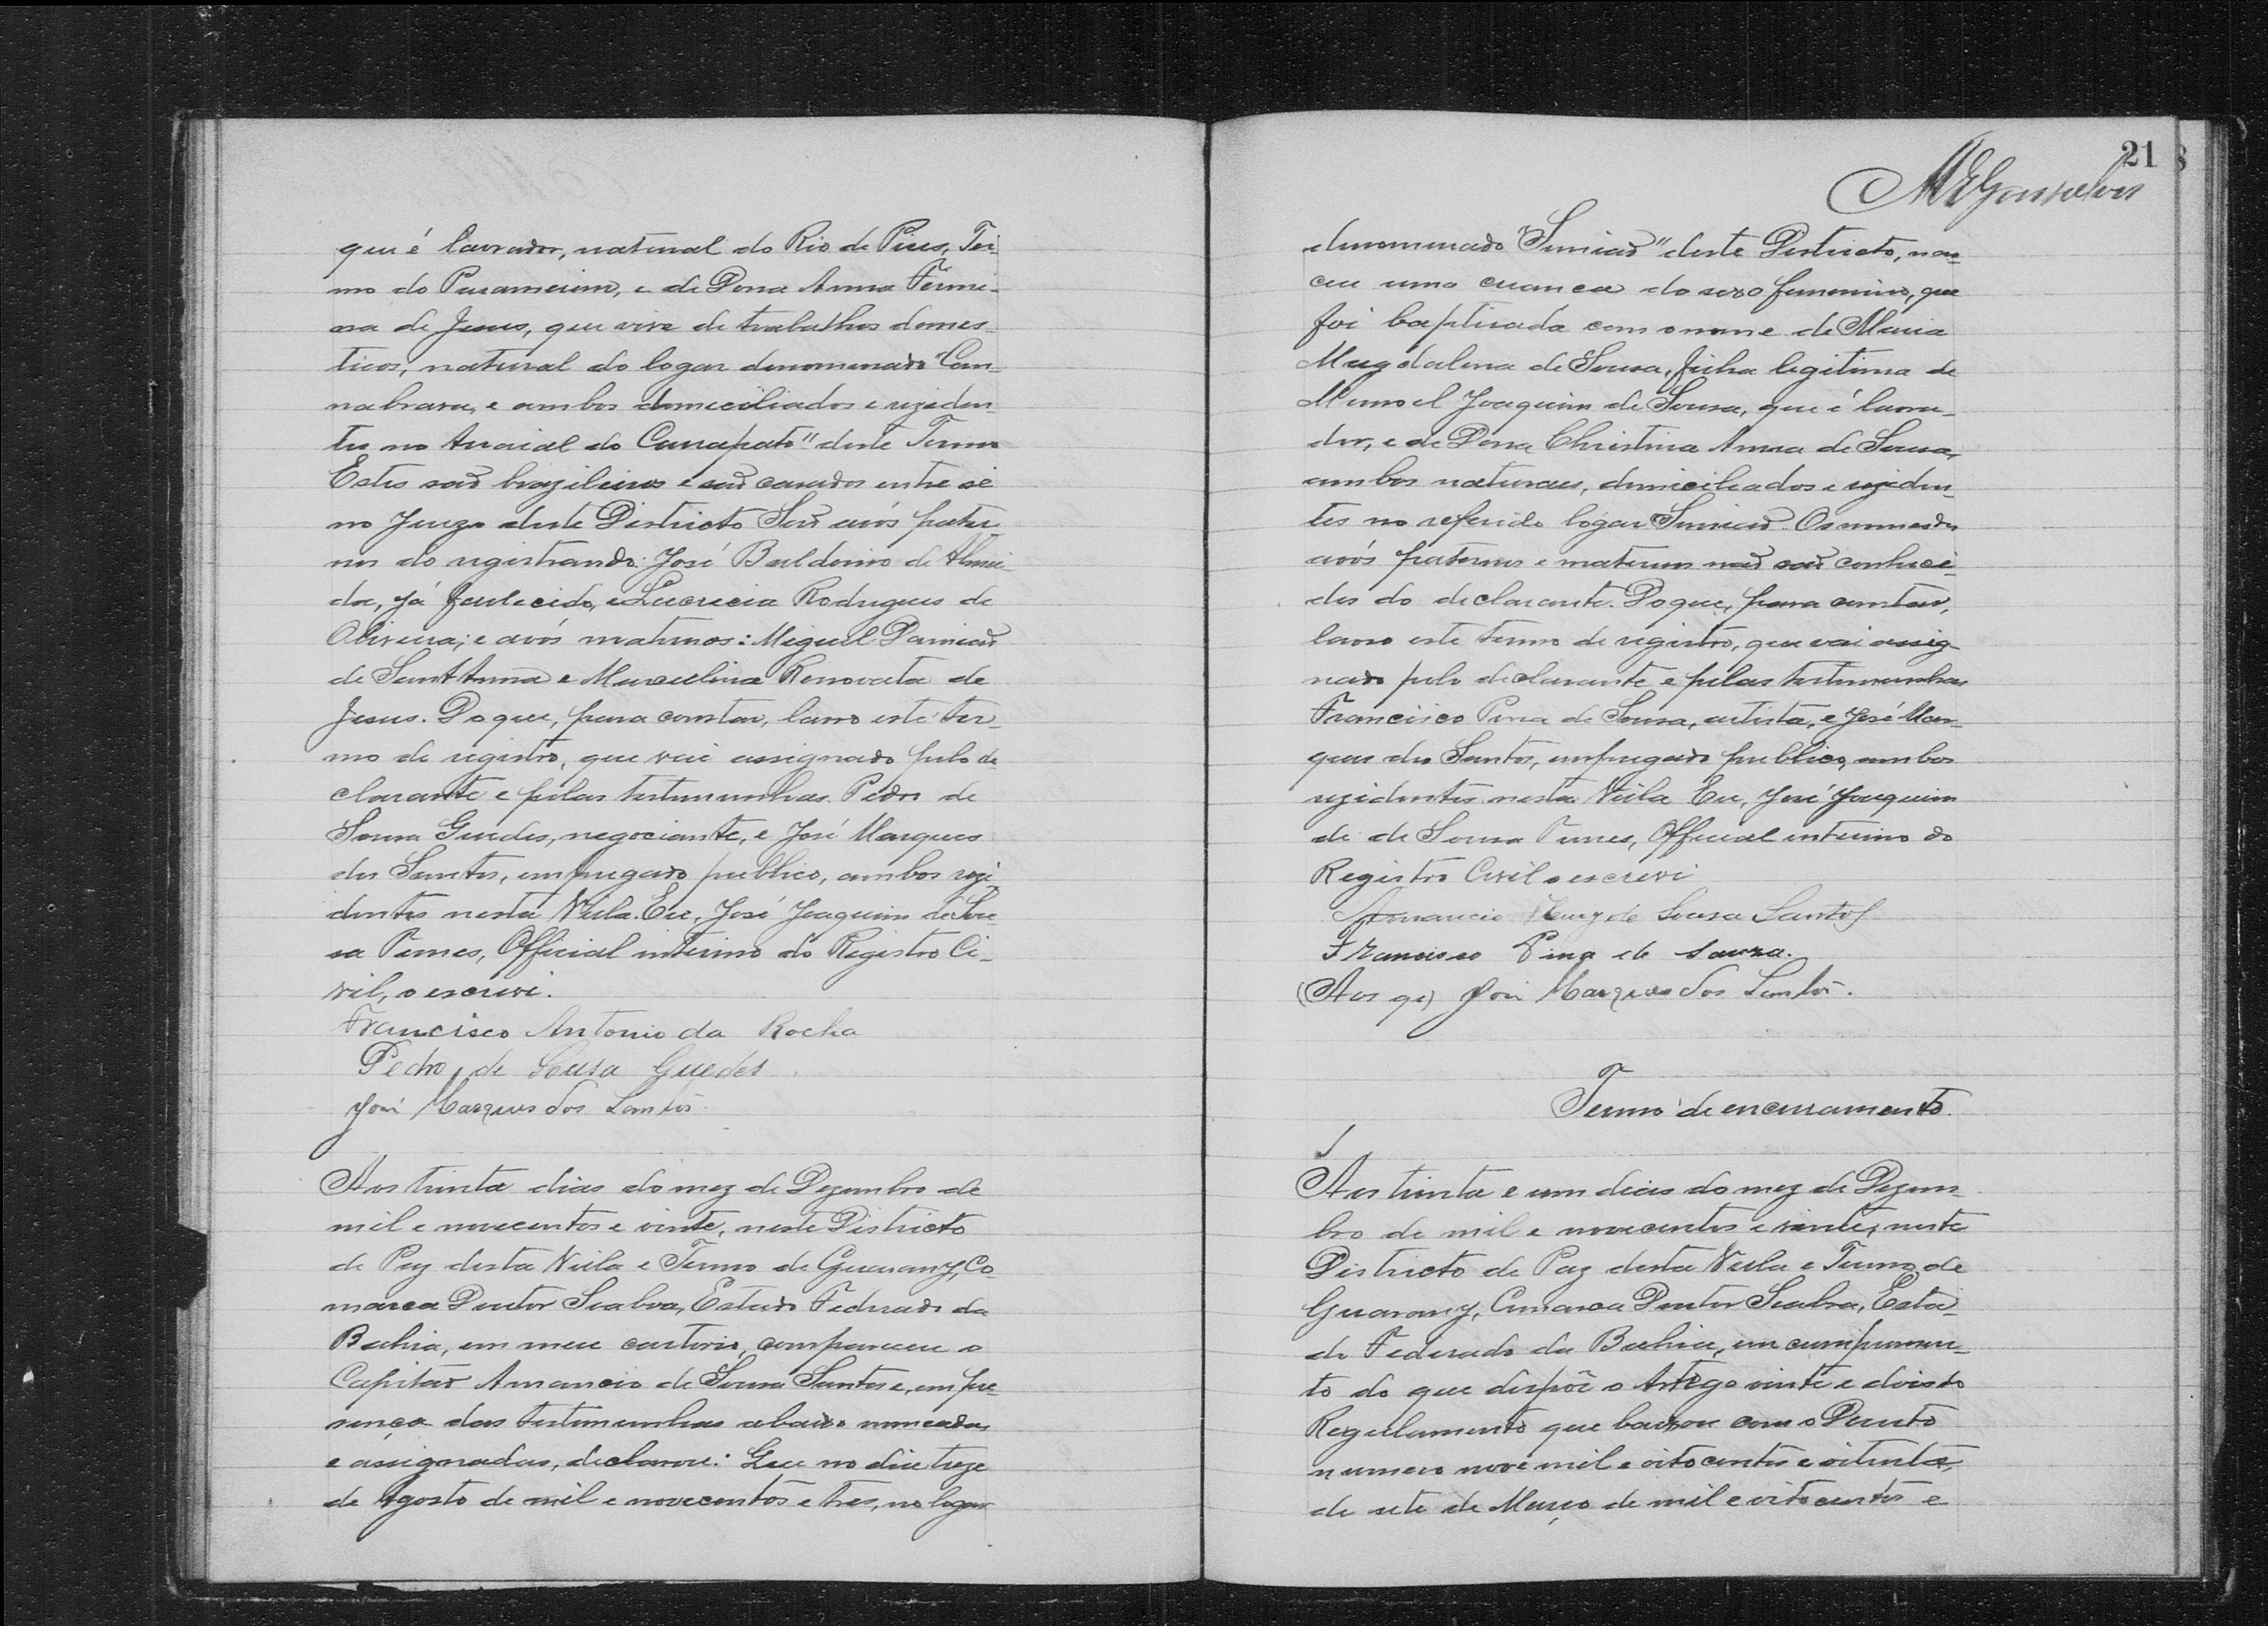 que é lavrador, natural do Rio de Pires, Ter-
mo do Paramirim, e de Dona Anna Fermi-
na de Jesus, que vive de trabalhos domes-
ticos, natural do logar denominado "Can-
nabrava, e ambos domiciliados e reziden-
tes no Arraial do Carrapato" deste Termo
Estes saõ brazileiros e saõ casados entre si
no Juizo deste Districto Saõ avós pater
nos do registrando: José Baldoino de Almei-
da, já fallecido, e Lucrecia Rodrigues de
Oliveira; e avós maternos: Miguel Damiaõ
de Sant'Anna e Marculina Renovata de
Jesus. Do que, para constar, lavro este ter-
mo de registro, que vai assignado pelo de
clarante e pelas testimunhas Pedro de
Sousa Guedes, negociante, e José Marques
dos Santos, empregado publico, ambos rezi
dentes nesta Villa. Eu, José Joaquim de Sou-
sa Nunes, Official interino do Registro Ci-
vil, o escrevi.
Francisco Antonio da Rocha
Pedro de Sousa Guedes
José Marques dos Santos.
Aos trinta dias do mez de Dezembro de
mil e novecentos e vinte, neste Districto
de Paz desta Villa e Termo de Guarany, Co-
marca Doutor Seabra, Estado Federado da
Bahia, em meu cartorio, compareceu o
Capitaõ Amancio de Sousa Santos e, em pre-
sença das testimunhas abaixo nomeadas
e assignadas, declarou: Que no dia treze
de Agosto de mil e novecentos e tres, no logar
21
denominado "Simiaõ" deste Districto, nas-
ceu uma creanca do sexo femenino, que
foi baptisada com o nome de Maria
Magdalena de Sousa, filha legitima de
Manoel Joaquim de Sousa, que é lavra-
dor, e de Dona Christina Anna de Sousa,
ambos naturaes, domiciliados e reziden-
tes no referido logar Simiaõ. Os nomes dos
avós paternos e maternos naõ saõ conheci-
dos do declarante. Do que, para constar,
lavro este termo de registro, que vai assig-
nado pelo declarante e pelas testimunhas
Francisco Pina de Sousa, artista, e José Mar-
ques dos Santos, empregado publico, ambos
rezidentes nesta Villa Eu, José Joaquim
de de Sousa Nunes, Official interino do
Registro Civil o escrevi
Amancio de Sousa Santos
Francisco Pina de Souza.
José Marques dos Santos.
Termo de encerramento.
Aos trinta e um dias do mez de Dezem-
bro de mil e novecentos e vinte, neste
Districto de Paz desta Villa e Termo de
Guarany, Comarca Doutor Seabra, Esta-
do Federado da Bahia, em cumprimen-
to do que dispõe o Artigo vinte e dois do
Regulamento que baixou com o Decreto
numero nove mil e oitocentos e oitenta,
de sete de Março de mil e oitocentos e